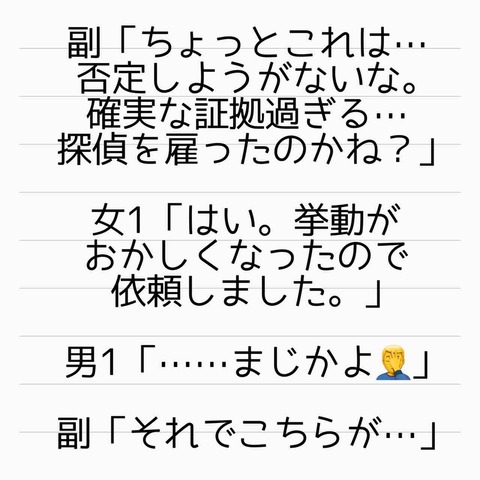 副「ちょっとこれは…
否定しようがないな。
確実な証拠過ぎる…
探偵を雇ったのかね？」
女1「はい。挙動が
おかしくなったので
依頼しました。」
男1「……まじかよ🤦‍♂️」
副「それでこちらが…」